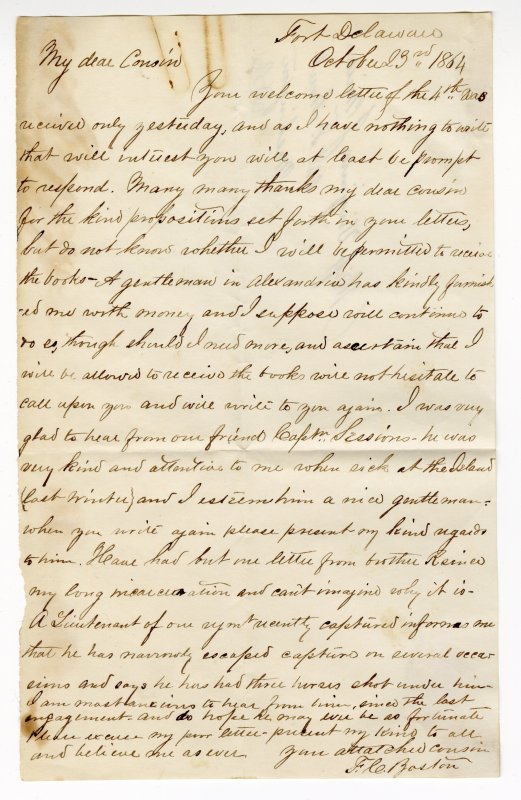 Fort Delaware
October 23rd 1864
My dear Cousin
Your welcome letter of the 4th was
received only yesterday, and as I have nothing to write
that will interest you will at least be prompt
to respond. Many many thanks my dear cousin
for the kind propositions set forth in your letters,
but do not know whether I will be permitted to receive
the books - A gentleman in Alexandria has kindly furnish
-ed me with money and I suppose will continue to
do so, though should I need more, and ascertain that I
will be allowed to receive the books will not hesitate to
call upon you and will write to you again. I was very
glad to hear from our friend Captn. Sessions - he was
very kind and attentive to me when sick at the Island
(last Winter) and I esteem him a nice gentleman =
when you write again please present my kind regards
to him. Have had but one letter from brother R since
my long incarceration and can't imagine why it is -
A Lieutenant of our rgmt recently captured informs me
that he has narrowly escaped capture on several occa-
sions and says he has had three horses shot under him -
I am most anxious to hear from him, since the last
engagement - and do hope he may ever be as fortunate
Please excuse my poor letter - present my kind to all
and believe me as ever your attatched cousin
F. C. Boston